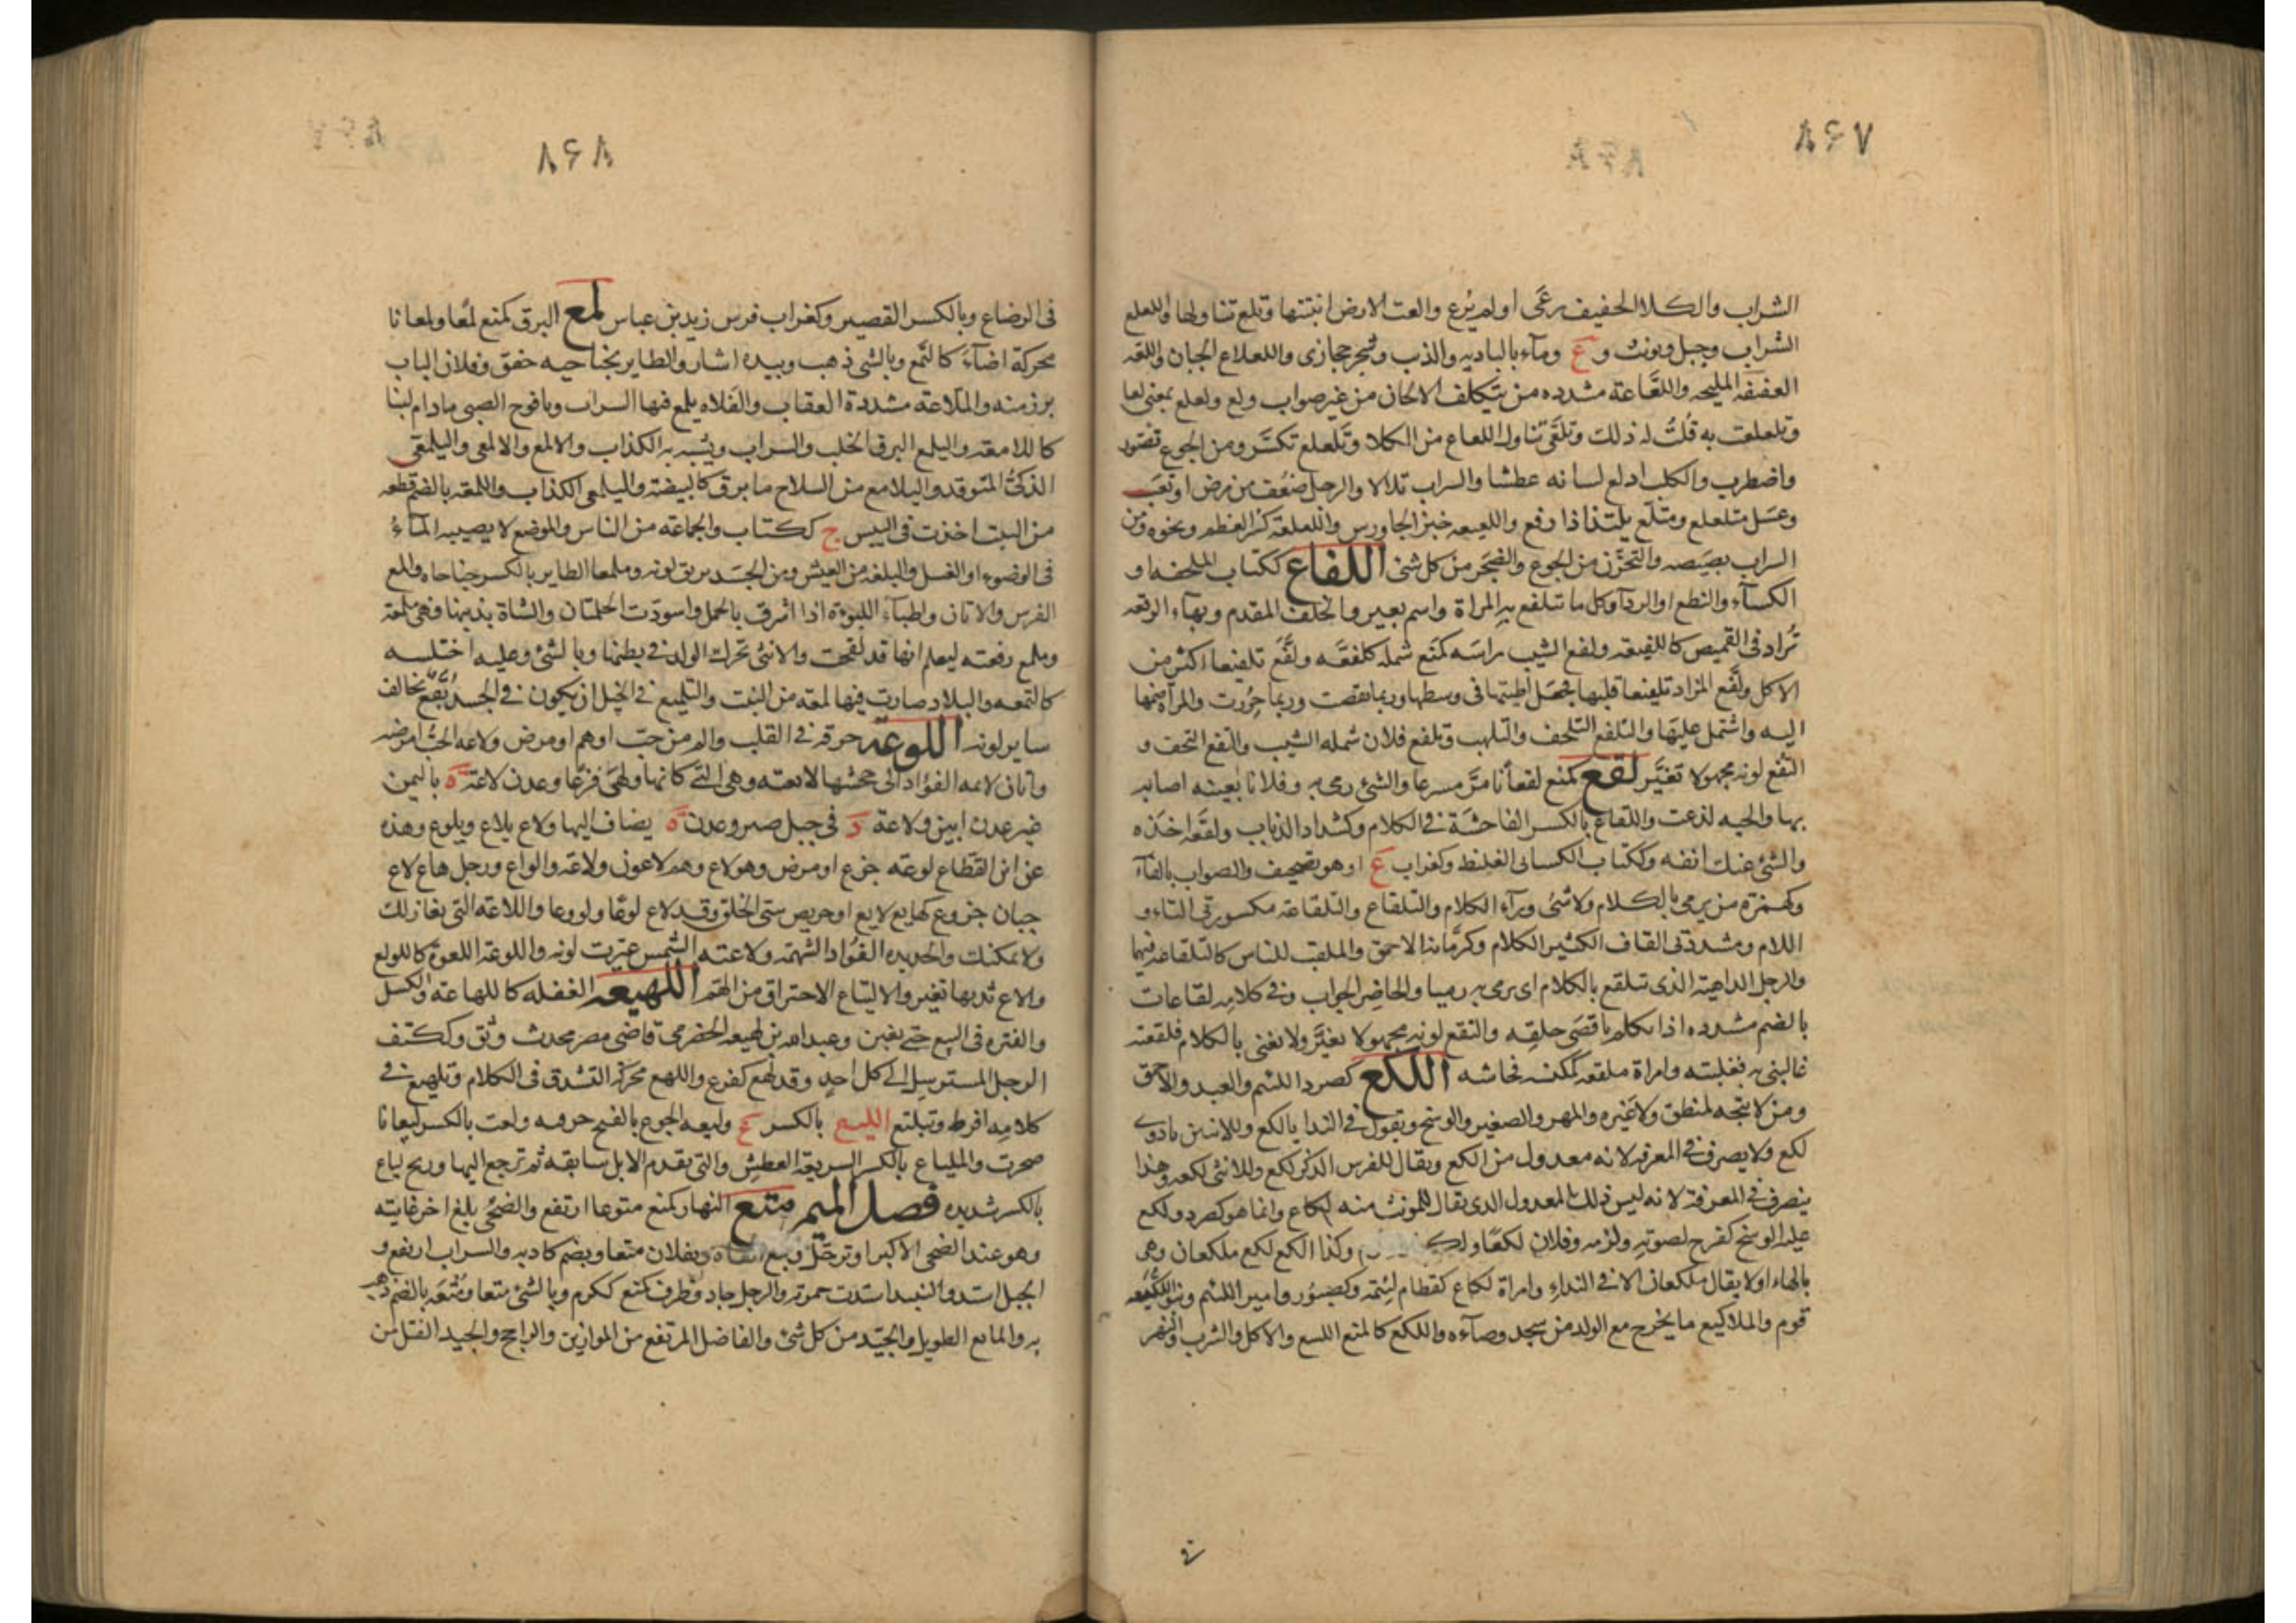 ٨۶٧
الشراب والكلا الخفيف رعى او لم يرع والعت الارض انبتتها وتلع تناولها واللعلع
الشراب وجبل ويونث و ع وماء بالباديه والذب وشجر حجازى واللعلاع الجبان واللعه
العفيفه المليحه واللعاعة مشدده من يتكلف الالحان من غير صواب ولع ولعلع بمعنى لعا
وتلعلعت به قلت له ذلك وتلعى تناول اللعاع من الكلا وتلعلع تكسر ومن الجوع تضور
واضطرب والكلب ادلع لسانه عطشا والسراب تلالا والرجل ضعف من مرض او تعب
وعسل متلعلع ومتلع يلتذ اذا رفع واللعيعه خبز الجاورس واللعلعة كسر العظم ونحوه ومن
السراب بصيصه والتحزن من الجوع والضجر من كل شئ اللفاع ككتاب الملحفه او
الكساء والنطع او الرداء وكل ما تتلفع به المراة واسم بعير وما تحلف المقدم وبهاء الرقعه
تزاد فى القميص كاللفيعه ولفع الشيب راسه كمنع شمله كلفعه ولفع تلفيعا اكثر من
الاكل ولفع المزاد تلفيعا قلبها فجعل اطبتها فى وسطها وربما نقضت وربما خرزت والمراة ضمها
اليه واشتمل عليها والتلفع التلحف والتلهب وتلفع فلان شمله الشيب والتفع التحف و
التفع لونه مجهولا تغير لقع كمنع لقعانا مر مسرعا والشئ رمى به وفلانا بعينه اصابه
بها والحيه لذعت واللقاع بالكسر الفاحشة فى الكلام وكشداد الذباب ولقعه اخذه
والشئ عنك انفه وككتاب الكسائى الغليظ وكغراب ع او هو تصحيف والصواب بالفاء
وكهمزة من يرمى بالكلام ولا شئ وراء الكلام والتلقاع والتلقاعة مكسورتى التاء و
اللام ومشددتى القاف الكثير الكلام وكرمانه الاحمق والملقب للناس كالتلقاعه فيها
والرجل الداهية الذى تتلقع بالكلام اى يرمى به رميا والحاضر الجواب وفى كلامه لقاعات
بالضم مشدده اذا تكلم باقصى حلقه والتقع لونه مجهولا تغير ولا بغنى بالكلام فلقعته
غالبنى به فغلبته وامراة ملقعه كمكنسه فحاشه اللكع كصرد اللئيم والعبد والاحمق
ومن لا يتجه لمنطق ولا غيره والمهر والصغير والوسخ ويقول فى الندا يالكع وللاثنين ياذوى
لكع ولا يصرف فى المعرفه لانه معدول من الكع ويقال للفرس الذكر لكع وللانثى لكعه وهذا
ينصرف فى المعرفة لانه ليس ذلك بالمعدول الذى يقال للمونث منه لكاع وانما هو كصرد ولكع
عليه الوسخ كفرح لصق به ولزمه وفلان لكعا وكذا الكع لكع ملكعان وهى
بالهاء او لا يقال ملكعان الا فى النداء وامراة لكاع كقطام لئيمه وكصبور وامير اللئيم وبنو اللكيعه
قوم والملاكيع ما يخرج مع الولد من سخد وصاءه واللكع كالمنع اللسع والاكل والشرب والنهز
٨۶٨
فى الرضاع وبالكسر القصير وكغراب فرس زيد بن عباس لمع البرق كمنع لمعا ولمعانا
محركة اضاء كالتمع وبالشئ ذهب وبيده اشار والطاير بجناحيه خفق وفلان الباب
برز منه والملاعة مشددة العقاب والفلاه يلمع فيها السراب ويافوخ الصبى مادام لينا
كاللامعه واليلمع البرق الخلب والسراب ويشبه به الكذاب والالمع والالمعى واليلمعى
الذكى المتوقد واليلامع من السلاح ما برق كالبيضه واليلمعى الكذاب واللمعه بالضم قطعه
من النبت اخذت فى اليبس ج ككتاب والجماعة من الناس والموضع لا يصيبه الماء
فى الوضوء او الغسل والبلغه من العيش ومن الجسد بريق لونه وملمعا الطاير بالكسر جناحاه والمع
الفرس والاتان واطباء اللبوة اذا اشرق بالحمل واسودت الحلمتان والشاة بذنبها فهى ملمعة
وملمع رفعته ليعلم انها قد لقحت والانثى تحرك الولد فى بطنها وبالشئ وعليه اختلسه
كالتمعه والبلاد صارت فيها لمعه من النبت والتلميع فى الخيل ان يكون فى الجسد بقع تخالف
ساير لونه اللوعة حرقه فى القلب والم من حب او هم او مرض ولاعه الحب امرضه
واتان لاعه الفؤاد الى جحشها لائعته وهى التى كانها ولهى فزعا وعدن لاعة ة باليمن
غير عدن ابين ولاعة د فى جبل صبر وعدن ة يضاف اليها ولاع يلاع ويلوع وهذه
عن ابن القطاع لوعة جزع او مرض وهو لاع وهم لاعون ولاعة والواع ورجل هاع لاع
جبان جزوع كهايع لايع او حريص سئ الخلق وقد لاع لوعا ولووعا واللاعه التى تغازلك
ولا تمكنك والحديده الفؤاد الشهمة ولاعته الشمس غيرت لونه واللوعة اللعوة كاللولع
والاع ثديها تغير والالتياع الاحتراق من الهم اللهيعه الغفله كاللهاعة والكسل
والفتره فى البيع حتى يغبن وعبدالله بن لهيعه الحضرمى قاضى مصر محدث وثق وككتف
الرجل المسترسل الى كل احد وقد لهع كفرح واللهع محركة التشدق فى الكلام وتلهيع فى
كلامه افرط وتبلتع الليع بالكسر ع وليعه الجوع بالفتح حرقه ولعت بالكسر ليعانا
ضجرت والملياع بالكسر السريعة العطش والتى تقدم الابل سابقه ثم ترجع اليها وريح لياع
بالكسر شديده فصل الميم متع النهار كمنع متوعا ارتفع والضحى بلغ اخر غايته
وهو عند الضحى الاكبر او ترجل وبفلان متعا ويضم كاذبه والسراب ارتفع و
الحبل اشتد والنبيذ اشتدت حمرته والرجل جاد وظرف كمتع ككرم وبالشئ متعا ومتعه بالضم ذهب
به والماتع الطويل والجيد من كل شئ والفاضل المرتفع من الموازين والراجح والجيد الفتل من